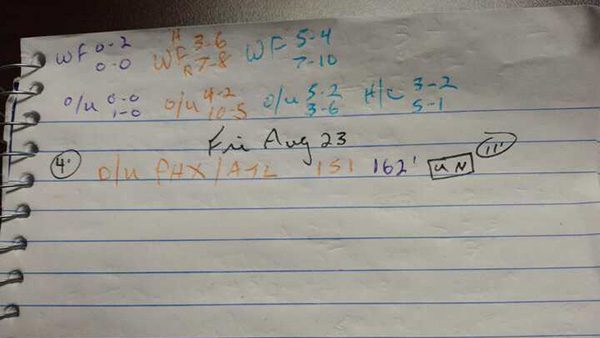 WF 0-2 H 3-6 WF 5-4
0-0 WF R 7-8 7-10
o/u 0-0 o/u 4-2 o/u 5-2 H/C 3-2
1-0 10-5 3-6 5-1
Fri Aug 23
4' o/u PHX/ATL 151 162' UN 11'